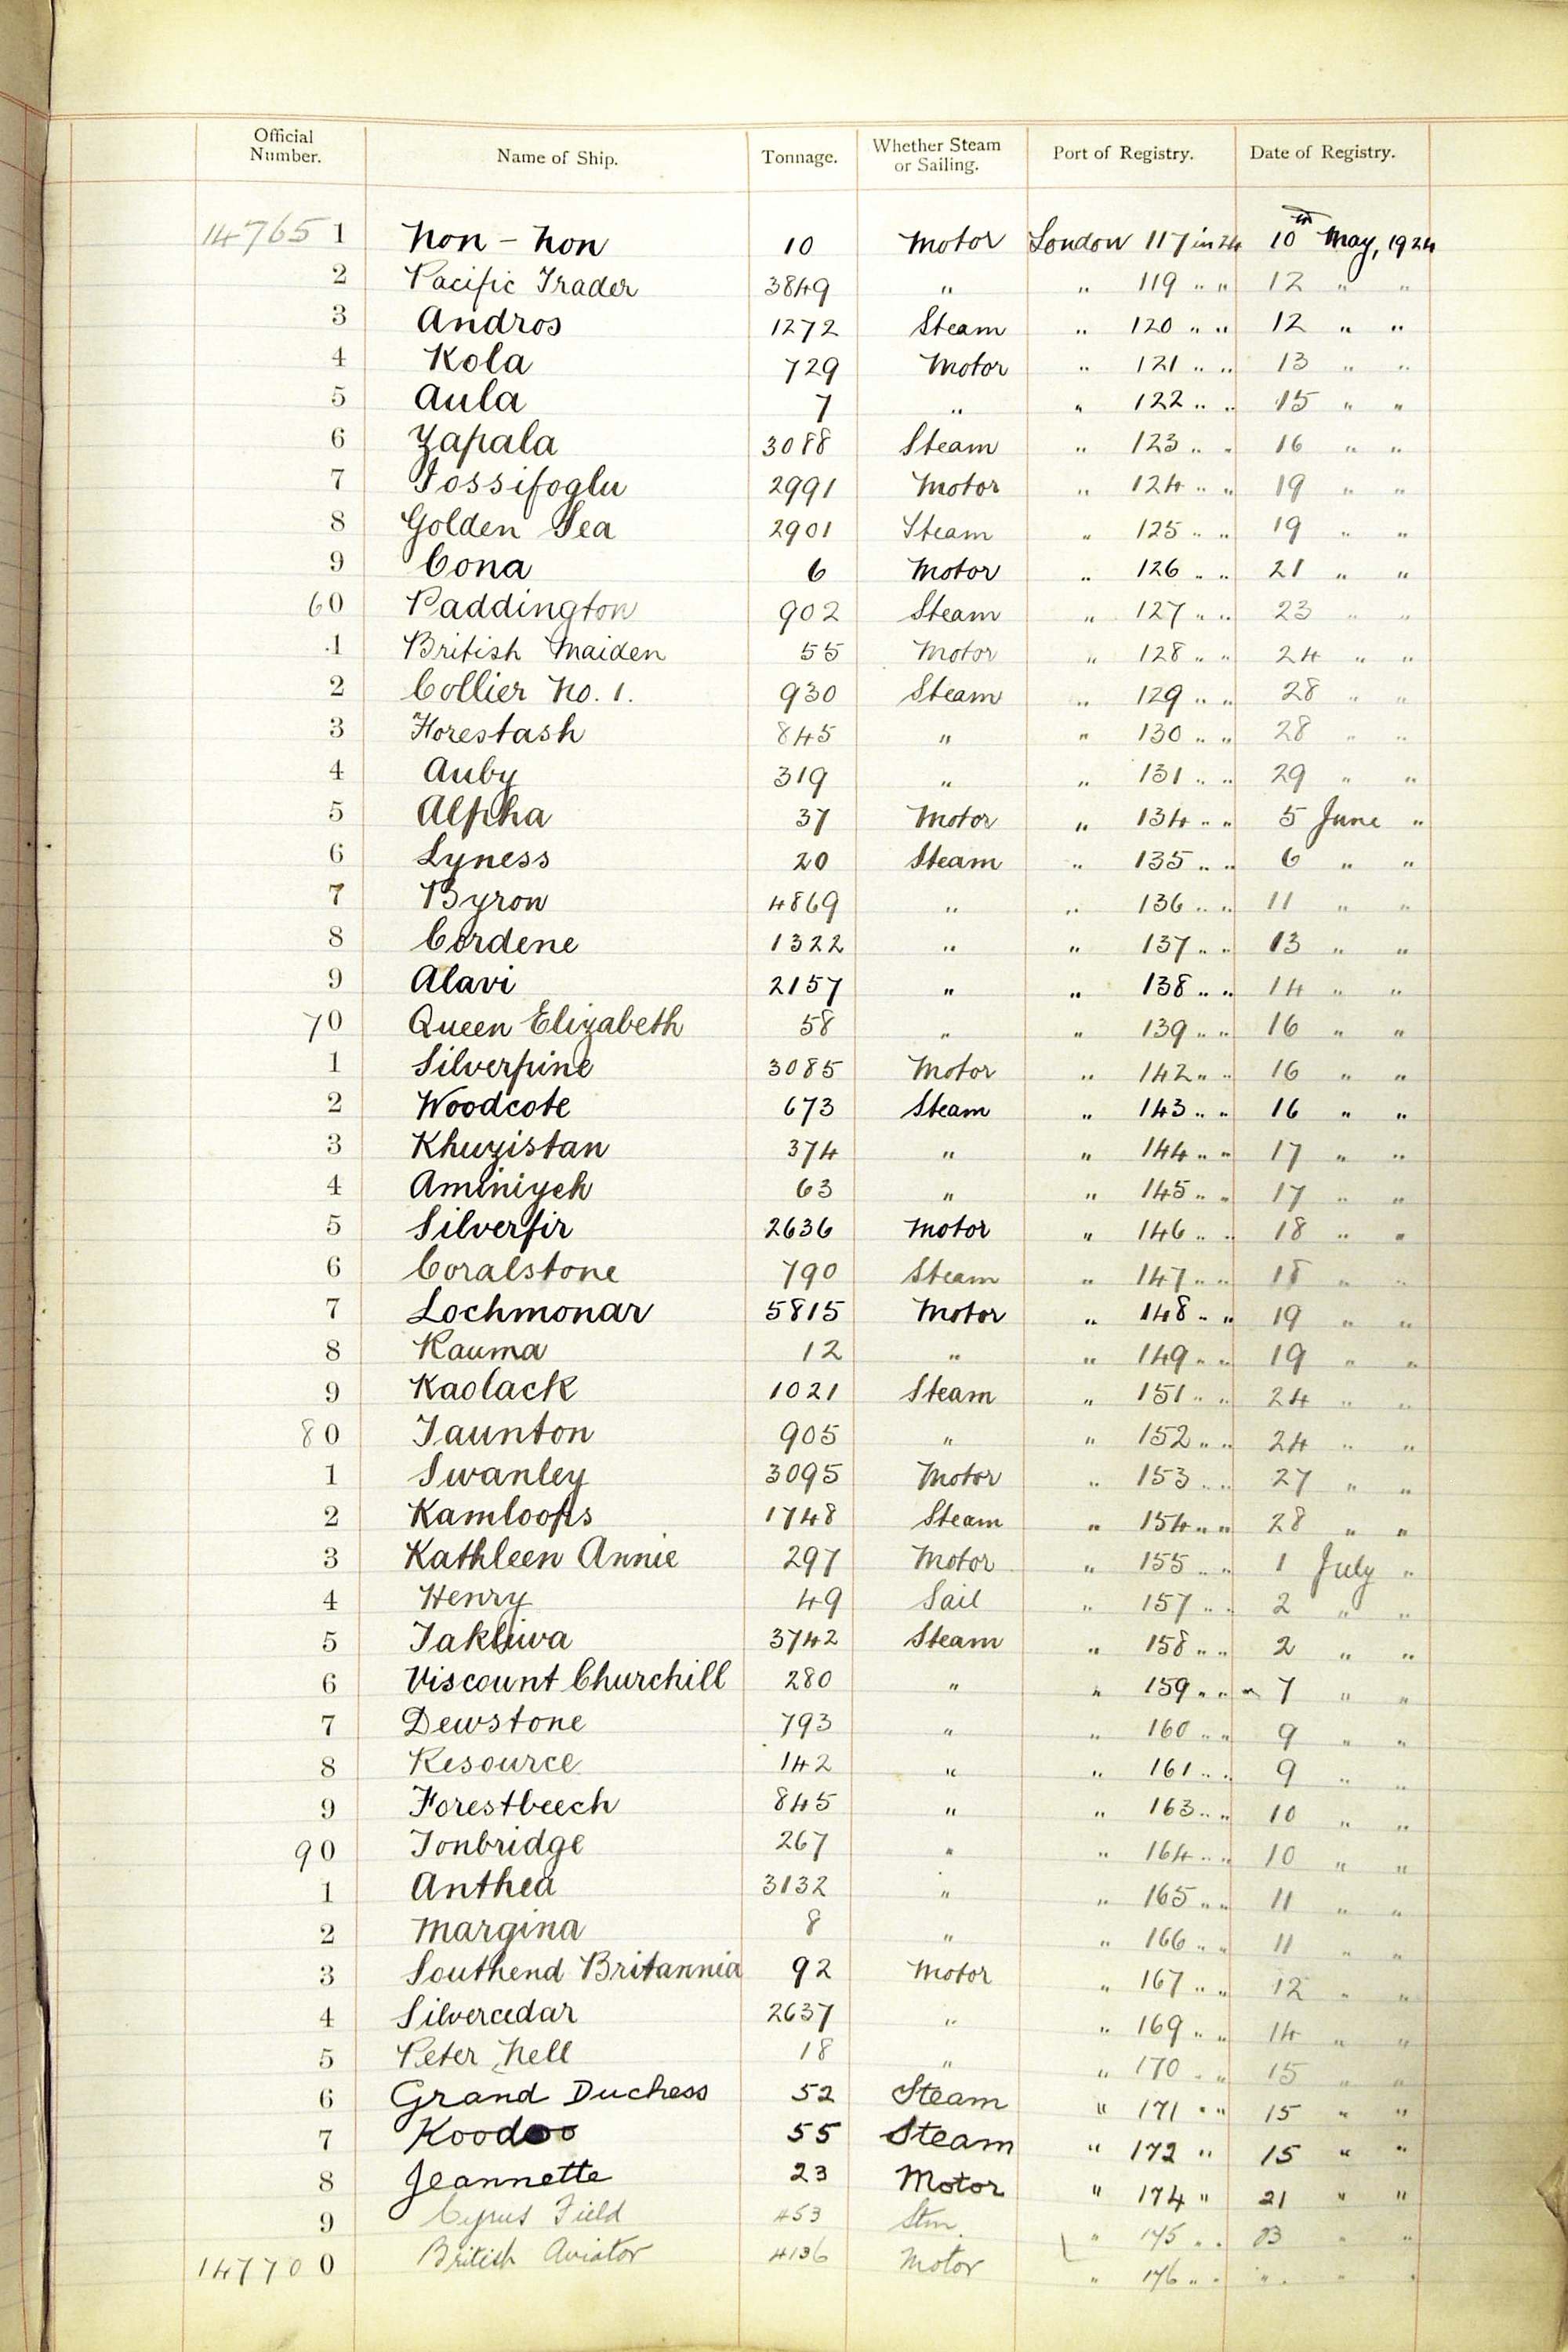 Official Number. Name of Ship. Tonnage. Whether Steam or Sailing. Port of Registry. Date of Registry.
147651 Non - Non 10 Motor London 117 in 24 10th May, 1924
2 Pacific Trader 3849 " " 119 " " 12 " "
3 Andros 1272 Steam " 120 " " 12 " "
4 Kola 729 Motor " 121 " " 13 " "
5 Aula 7 " " 122 " " 15 " "
6 Zapala 3088 Steam " 123 " " 16 " "
7 Iossifoglu 2991 Motor " 124 " " 19 " "
8 Golden Sea 2901 Steam " 125 " " 19 " "
9 Cona 6 Motor " 126 " " 21 " "
60 Paddington 902 Steam " 127 " " 23 " "
1 British Maiden 55 Motor " 128 " " 24 " "
2 Collier No. 1. 930 Steam " 129 " " 28 " "
3 Forestash 845 " " 130 " " 28 " "
4 Auby 319 " " 131 " " 29 " "
5 Alpha 37 Motor " 134 " " 5 June "
6 Lyness 20 Steam " 135 " " 6 " "
7 Byron 4869 " " 136 " " 11 " "
8 Cordene 1322 " " 137 " " 13 " "
9 Alavi 2157 " " 138 " " 14 " "
70 Queen Elizabeth 58 " " 139 " " 16 " "
1 Silverpine 3085 Motor " 142 " " 16 " "
2 Woodcote 673 Steam " 143 " " 16 " "
3 Khuzistan 374 " " 144 " " 17 " "
4 Aminiyeh 63 " " 145 " " 17 " "
5 Silverfir 2636 Motor " 146 " " 18 " "
6 Coralstone 790 Steam " 147 " " 18 " "
7 Lochmonar 5815 Motor " 148 " " 19 " "
8 Rauma 12 " " 149 " " 19 " "
9 Kaolack 1021 Steam " 151 " " 24 " "
80 Taunton 905 " " 152 " " 24 " "
1 Swanley 3095 Motor " 153 " " 27 " "
2 Kamloops 1748 Steam " 154 " " 28 " "
3 Kathleen Annie 297 Motor " 155 " " 1 July "
4 Henry 49 Sail " 157 " " 2 " "
5 Takliwa 3742 Steam " 158 " " 2 " "
6 Viscount Churchill 280 " " 159 " " 7 " "
7 Dewstone 793 " " 160 " " 9 " "
8 Resource 142 " " 161 " " 9 " "
9 Forestbeech 845 " " 163 " " 10 " "
90 Tonbridge 267 " " 164 " " 10 " "
1 Anthea 3132 " " 165 " " 11 " "
2 Margina 8 " " 166 " " 11 " "
3 Southend Britannia 92 Motor " 167 " " 12 " "
4 Silvercedar 2637 " " 169 " " 14 " "
5 Peter Nell 18 " " 170 " " 15 " "
6 Grand Duchess 52 Steam " 171 " " 15 " "
7 Koodoo 55 Steam " 172 " 15 " "
8 Jeannette 23 Motor " 174 " 21 " "
9 Cyrus Field 453 Stm. " 175 " " 23 " "
147700 British Aviator 4136 Motor " 176 " " " " "